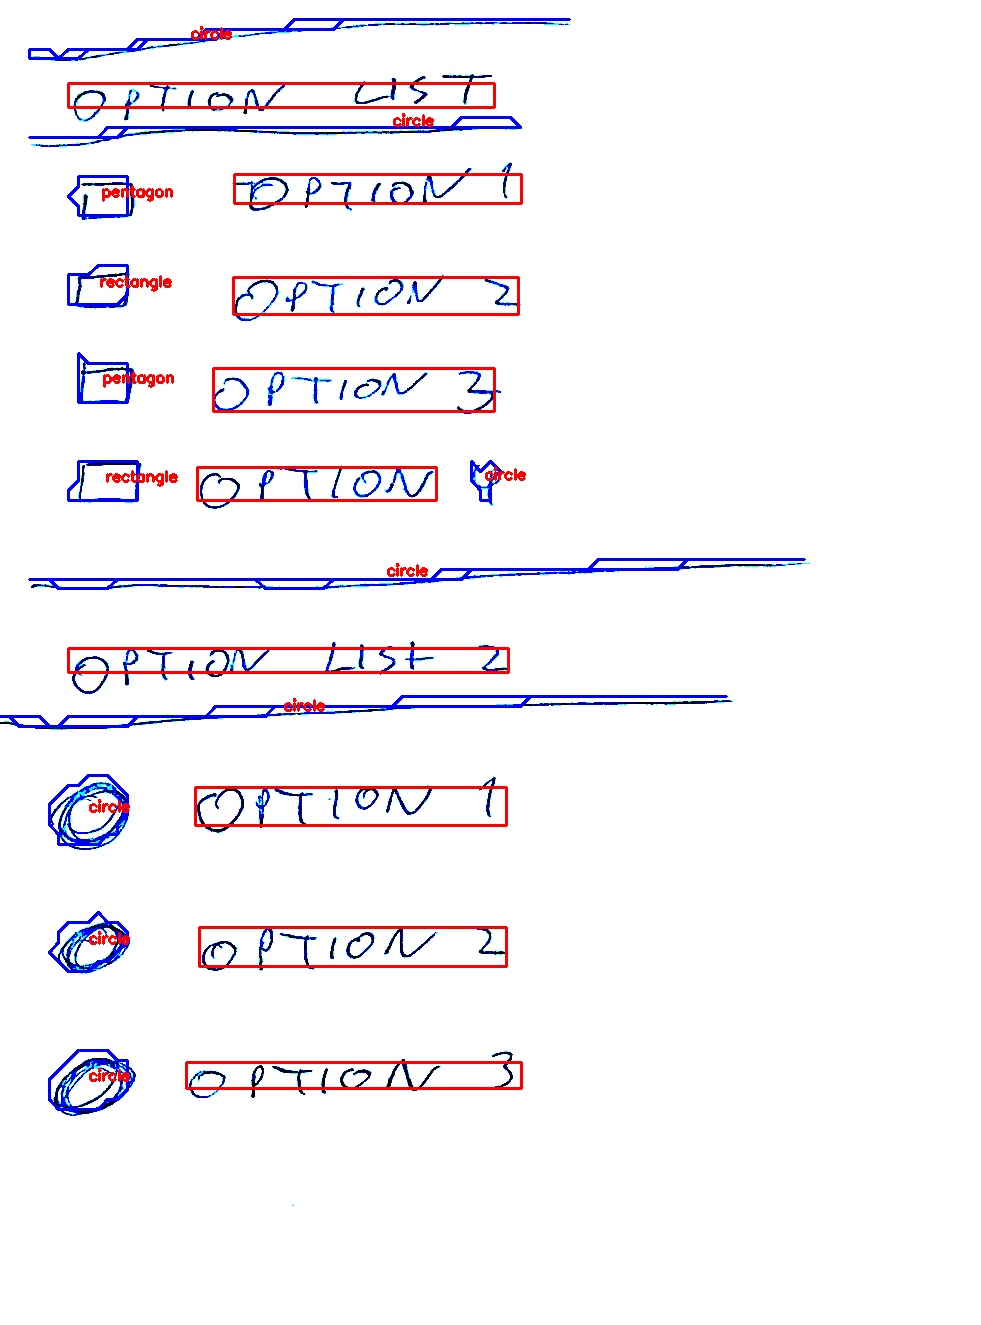 circle
OPTION LIST
circle
pentagon OPTION 1
rectangle OPTION 2
pentagon OPTION 3
rectangle OPTION circle
circle
OPTION LIST 2
circle
circle OPTION 1
circle OPTION 2
circle OPTION 3